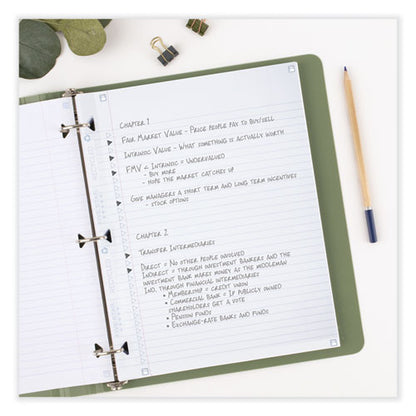 Chapter 1
Fair Market Value - Price people pay to buy/sell
Intrinsic Value - What something is actually worth
FMV < Intrinsic = Undervalued
- Buy more
- Hope the market catches up
Give managers a short term and long term incentives
- Stock options
Chapter 2
Transfer Intermediaries
Direct = No other people involved
Indirect = Through investment bankers and the
investment bank makes money as the middleman
Ind. through financial intermediaries
• Membership = Credit union
• Commercial bank = If publicly owned
shareholders get a vote
• Pension funds
• Exchange-rate banks and funds